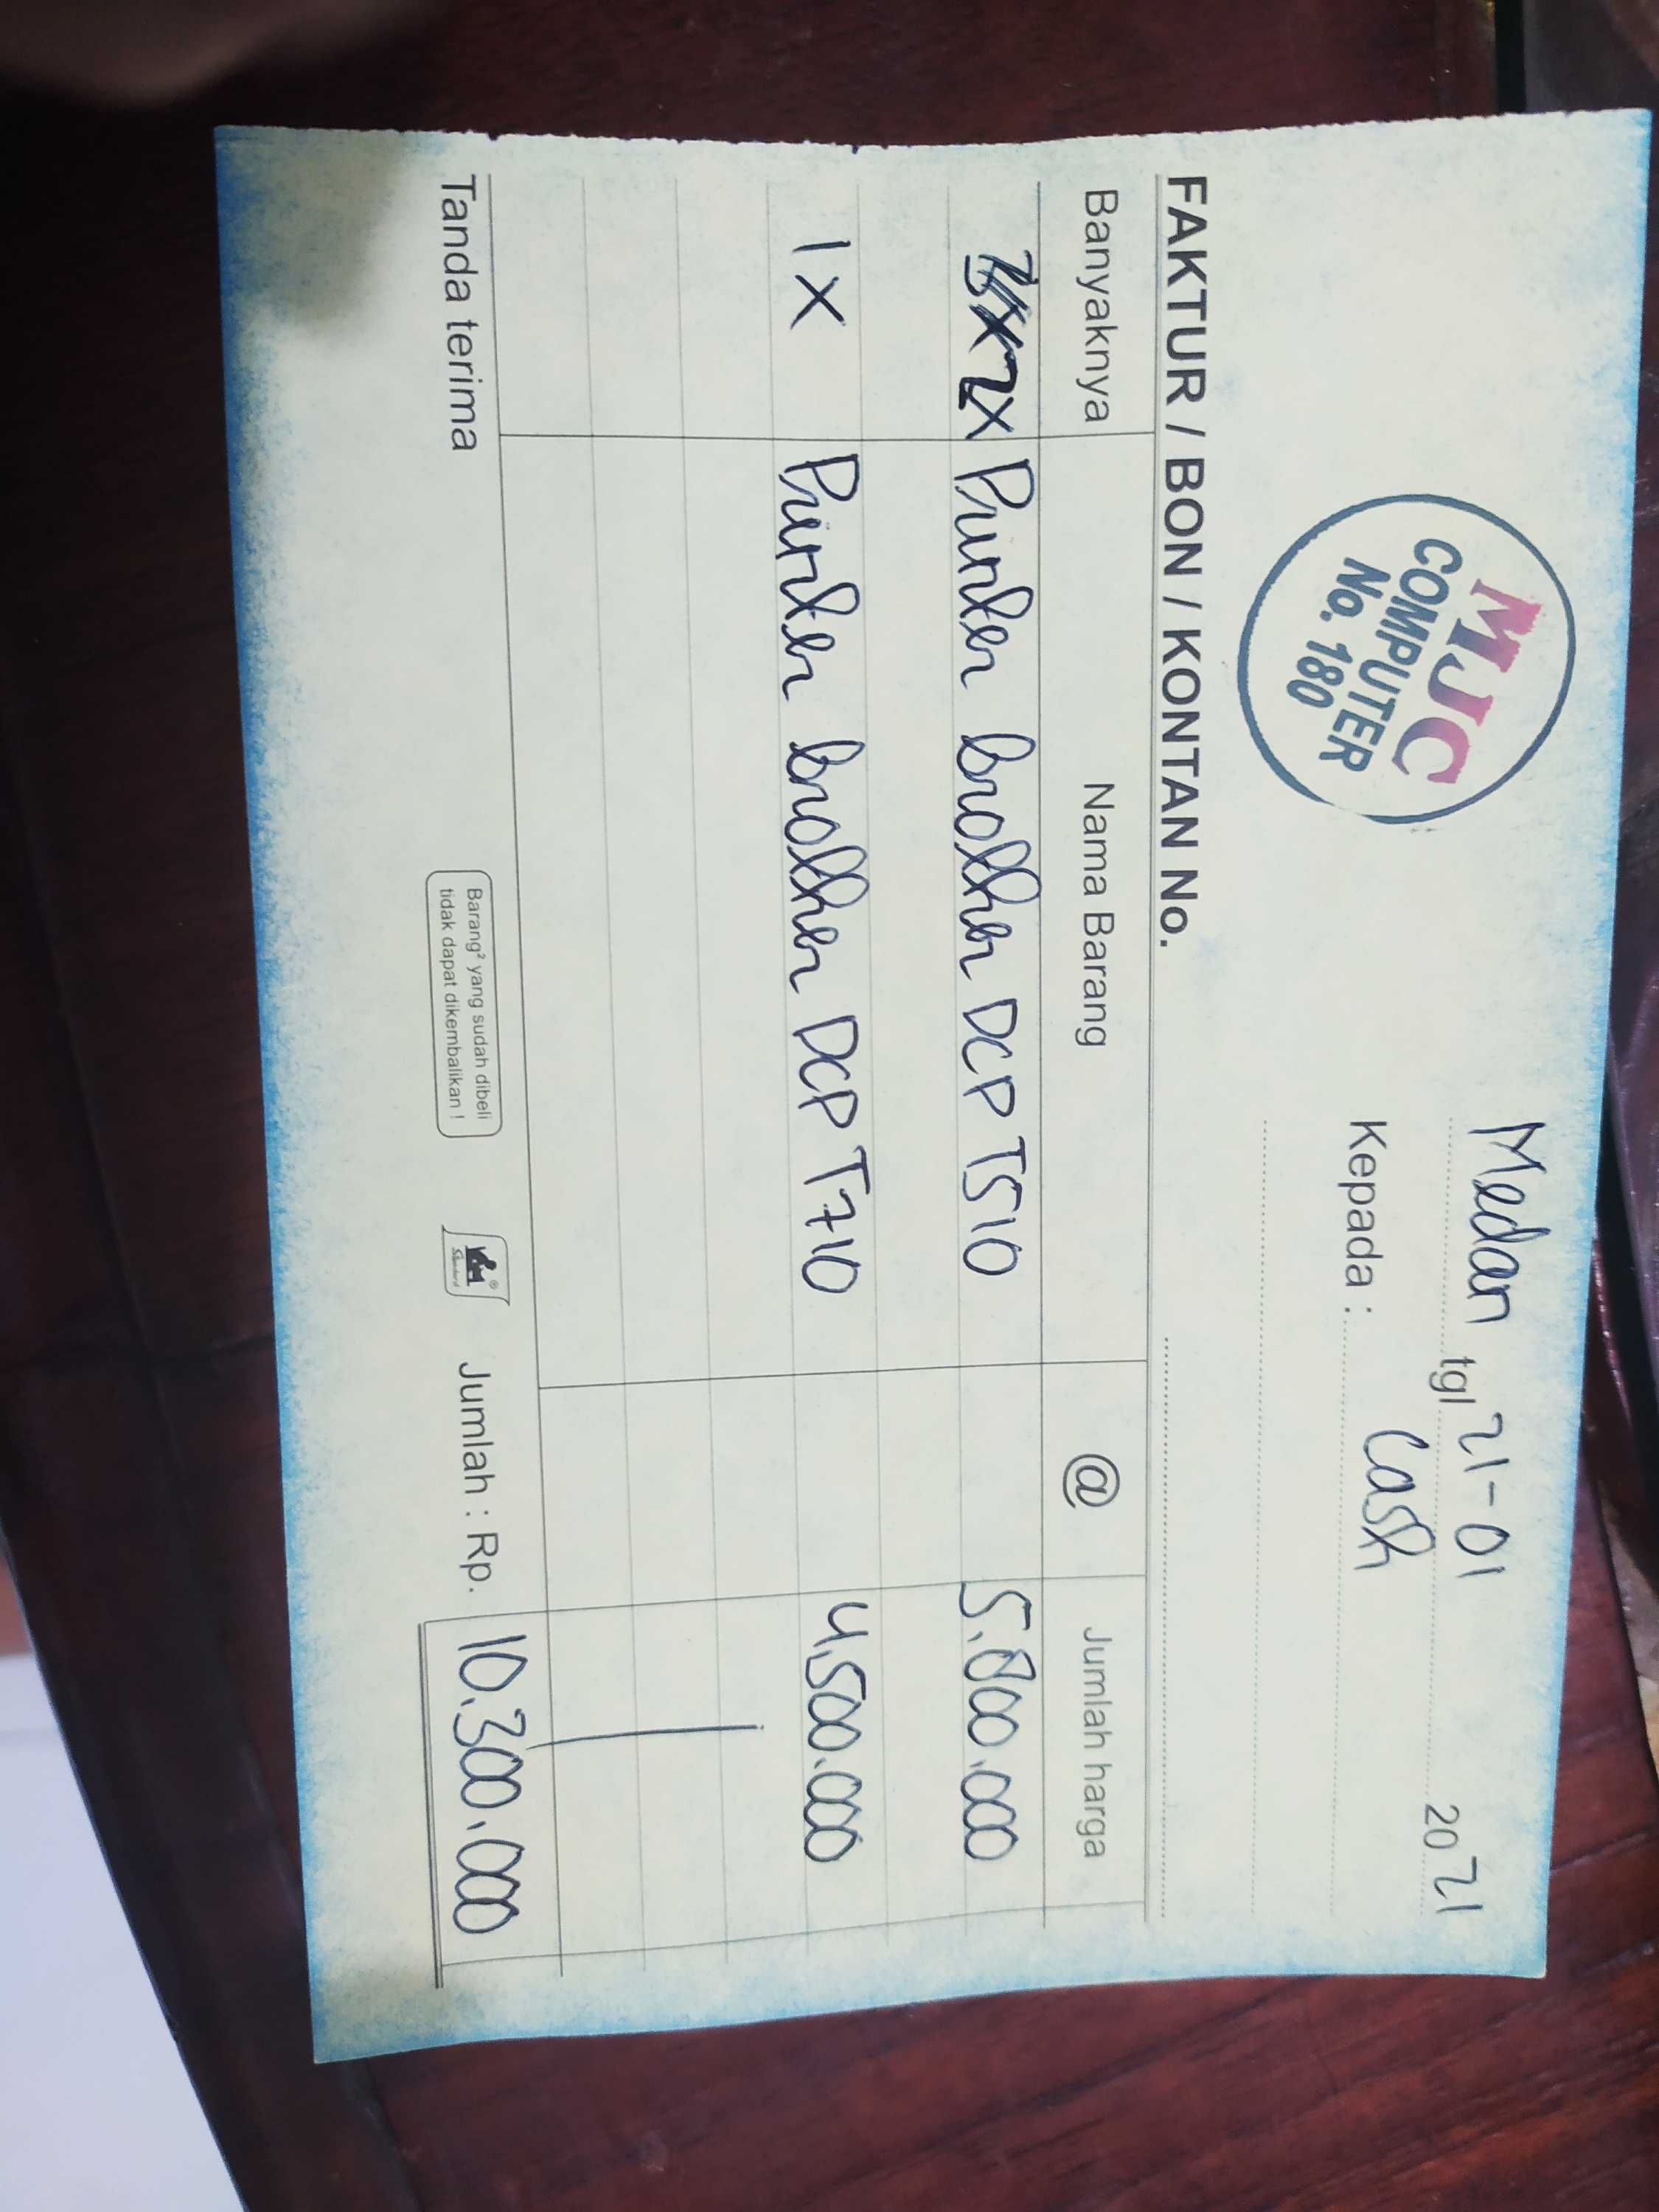 MJC
COMPUTER
No. 180
Medan tgl 21-01 2021
Kepada : Cash
FAKTUR / BON / KONTAN No.
Banyaknya Nama Barang @ Jumlah harga
2X Printer brother DCP T510 5.800.000
1 X Printer brother DCP T710 4.500.000
Tanda terima
Barang² yang sudah dibeli
tidak dapat dikembalikan !
Jumlah : Rp. 10.300.000